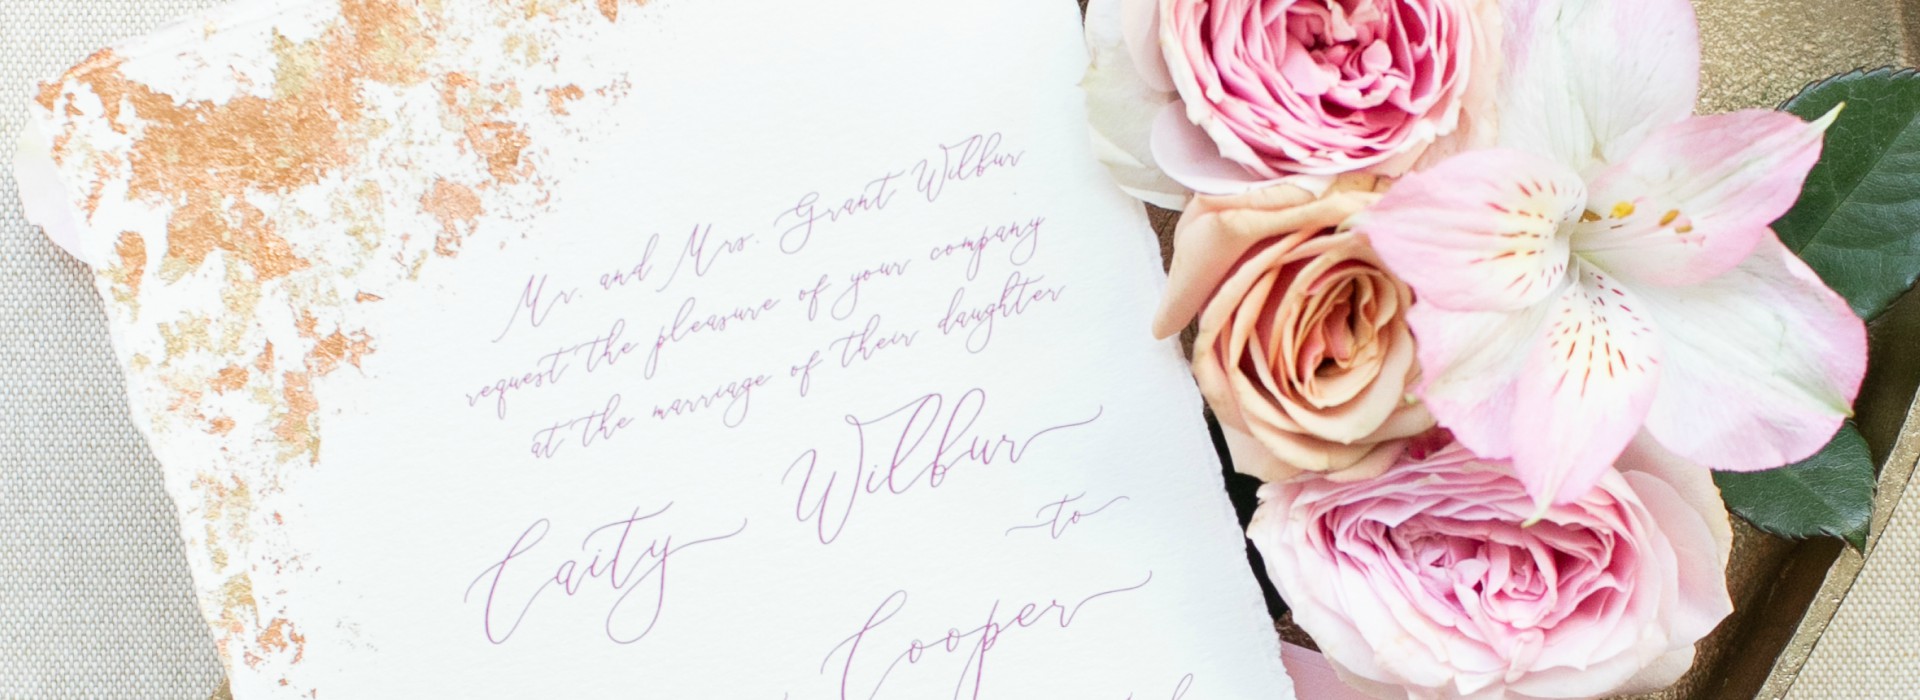 Mr. and Mrs. Grant Wilbur
request the pleasure of your company
at the marriage of their daughter
Caity Wilbur
to
Cooper